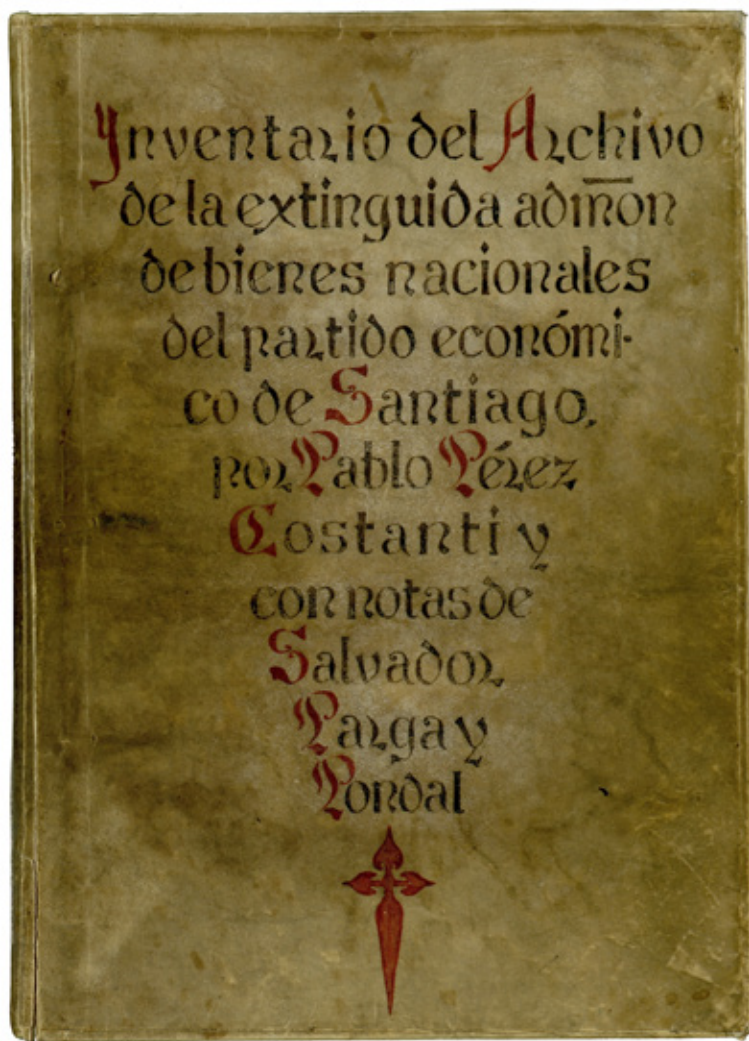 Inventario del Archivo
de la extinguida admōn
de bienes nacionales
del partido económi-
co de Santiago,
por Pablo Pérez
Costanti y
con notas de
Salvador
Parga y
Pondal